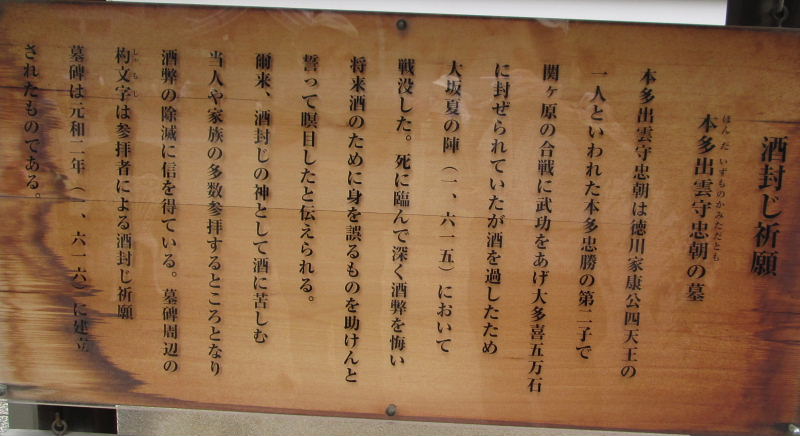 酒封じ祈願
ほんだいずものかみただとも
本多出雲守忠朝の墓
本多出雲守忠朝は徳川家康公四天王の
一人といわれた本多忠勝の第二子で
関ヶ原の合戦に武功をあげ大多喜五万石
に封ぜられていたが酒を過したため
大坂夏の陣（一、六一五）において
戦没した。死に臨んで深く酒弊を悔い
将来酒のために身を誤るものを助けんと
誓って瞑目したと伝えられる。
爾来、酒封じの神として酒に苦しむ
当人や家族の多数参拝するところとなり
酒弊の除滅に信を得ている。墓碑周辺の
しゃもじ
杓文字は参拝者による酒封じ祈願
墓碑は元和二年（一、六一六）に建立
されたものである。